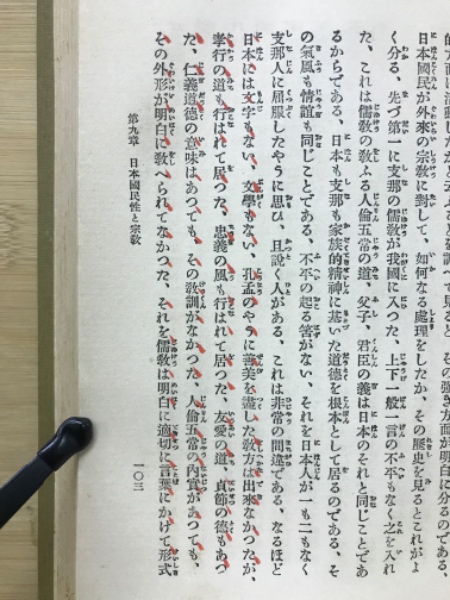 的方面に活動したかと云ふことを調べて見ると、その強き方面が明白に分るのである、
日本國民が外來の宗教に對して、如何なる處理をしたか、その歷史を見るとこれがよ
く分る、先づ第一に支那の儒教が我國に入つた、上下一般一言の不平もなく之を入れ
た、これは儒教の敎ふる人倫五常の道、父子、君臣の義は日本のそれと同じことであ
るからである、日本も支那も家族的精神に基いた道德を根本として居るのである、そ
の氣風も情誼も同じことである、不平の起る筈がない、それを日本人が一も二もなく
支那人に屈服したやうに思ひ、且說く人がある、これは非常の間違である、なるほど
日本には文字もない、文學もない、孔孟のやうに善美を盡した敎方は出來なかつたが、
孝行の道も行はれて居つた、忠義の風も行はれて居つた、友愛の道、貞節の德もあつ
た、仁義道德の意味はあつても、その敎訓がなかつた、人倫五常の內實があつても、
その外形が明白に敎へられてなかつた、それを儒敎は明白に適切に言葉にかけて形式
第九章 日本國民性と宗敎
一〇三